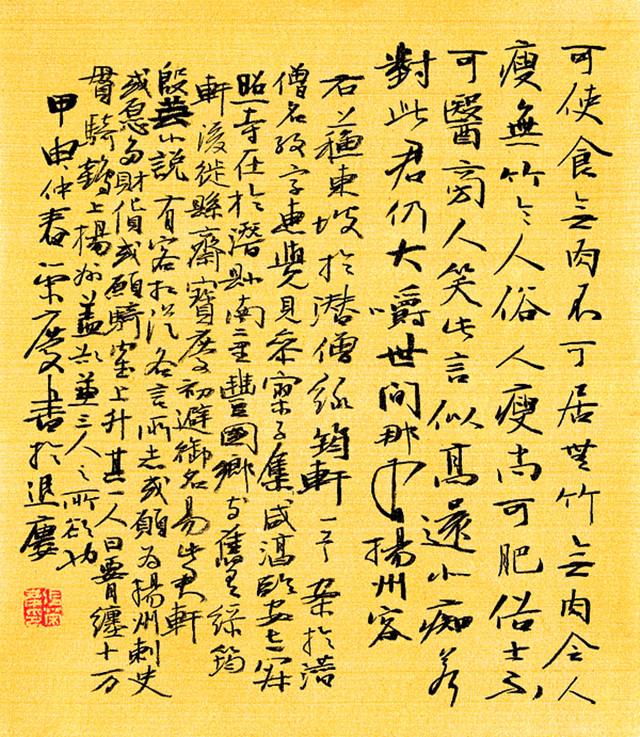 可使食無肉不可居無竹無肉令人
瘦無竹令人俗人瘦尚可肥俗士不
可醫旁人笑此言似高還似痴若
對此君仍大嚼世間那揚州
右蘇東坡於潛僧綠筠軒一首案於潛
僧名孜字惠覺見參寥子集咸淳臨安志寂
照寺在於潛縣南二里豐國鄉寺舊有綠筠
軒後徙縣齋寶慶初避御名易此君軒
殷芸小說有客相從各言所志或願為揚州刺史
或願多財貨或願騎鶴上升其一人曰腰纏十万
貫騎鶴上揚州蓋欲兼三人之所欲也
甲申仲春榮慶書於退廬